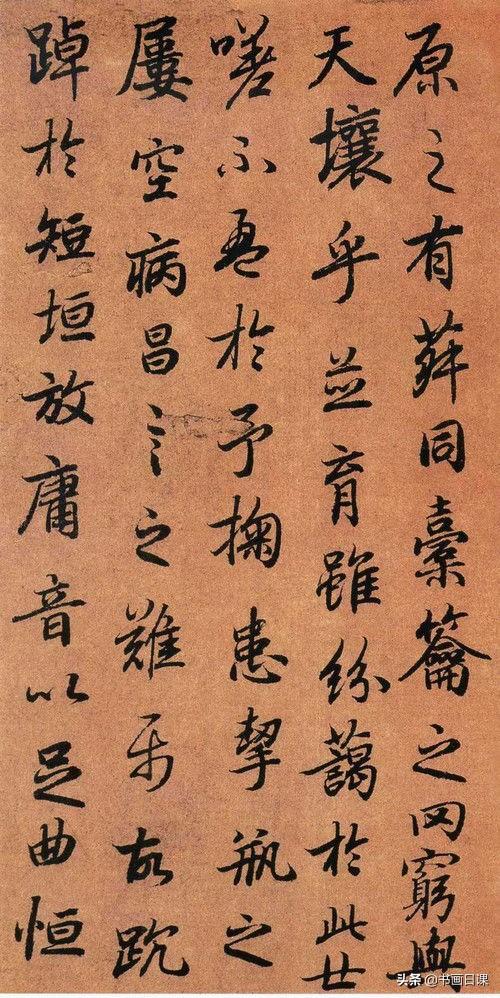 原之有菽同橐籥之罔窮與
天壤乎並育雖紛藹於此世
嗟不盈於予掬患挈瓶之
屢空病昌言之難屬故踸
踔於短垣放庸音以足曲恒
头条 @书画日课